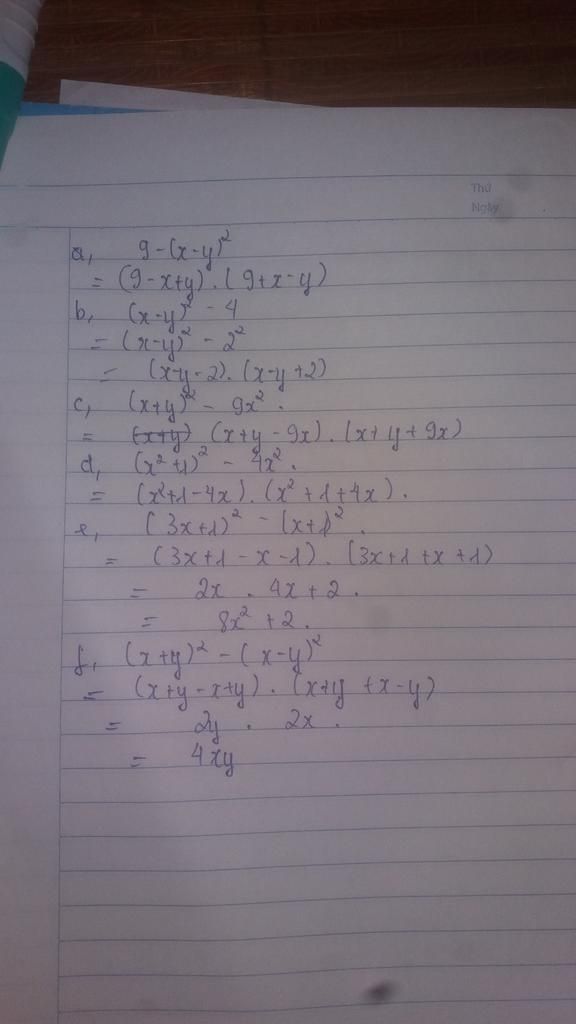 Thứ
Ngày
a, 9-(x-y)²
= (9-x+y).(9+x-y)
b, (x-y)² - 4
= (x-y)² - 2²
= (x-y-2).(x-y+2)
c, (x+y)² - 9x².
= (x+y) (x+y-9x).(x+y+9x)
d, (x²+1)² - 4x².
= (x²+1-4x).(x²+1+4x).
e, (3x+1)² - (x+1)².
= (3x+1-x-1).(3x+1+x+1)
= 2x . 4x+2.
= 8x²+2.
f, (x+y)² - (x-y)²
= (x+y-x+y).(x+y+x-y)
= 2y . 2x.
= 4xy